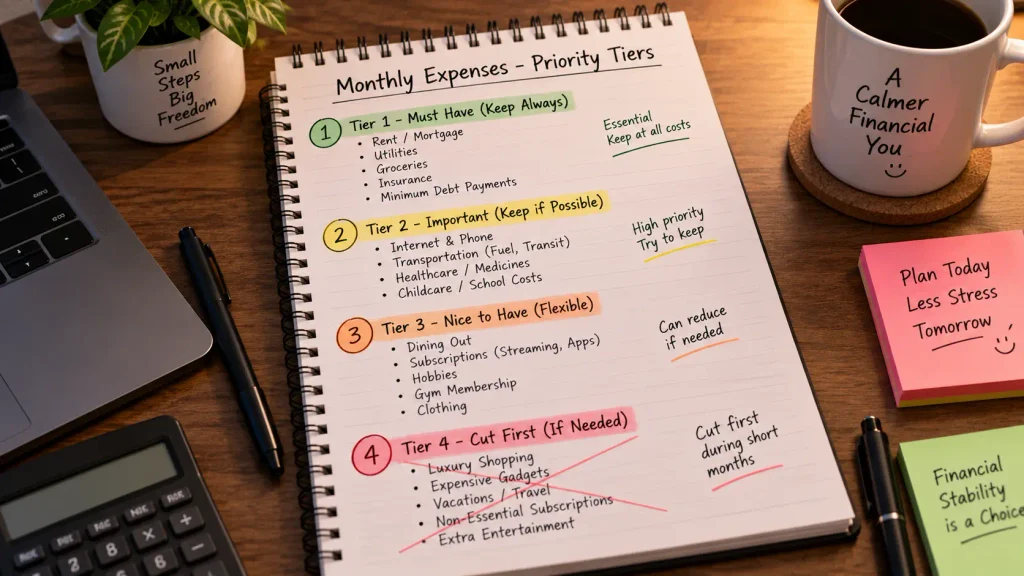 Small
Steps
Big
Freedom
Monthly Expenses - Priority Tiers
1 Tier 1 - Must Have (Keep Always)
• Rent / Mortgage
• Utilities
• Groceries
• Insurance
• Minimum Debt Payments
Essential
Keep at all costs
2 Tier 2 - Important (Keep if Possible)
• Internet & Phone
• Transportation (Fuel, Transit)
• Healthcare / Medicines
• Childcare / School Costs
High priority
Try to keep
3 Tier 3 - Nice to Have (Flexible)
• Dining Out
• Subscriptions (Streaming, Apps)
• Hobbies
• Gym Membership
• Clothing
Can reduce
if needed
4 Tier 4 - Cut First (If Needed)
• Luxury Shopping
• Expensive Gadgets
• Vacations / Travel
• Non-Essential Subscriptions
• Extra Entertainment
Cut first
during short
months
A
Calmer
Financial
You
Plan Today
Less Stress
Tomorrow
Financial
Stability
is a Choice